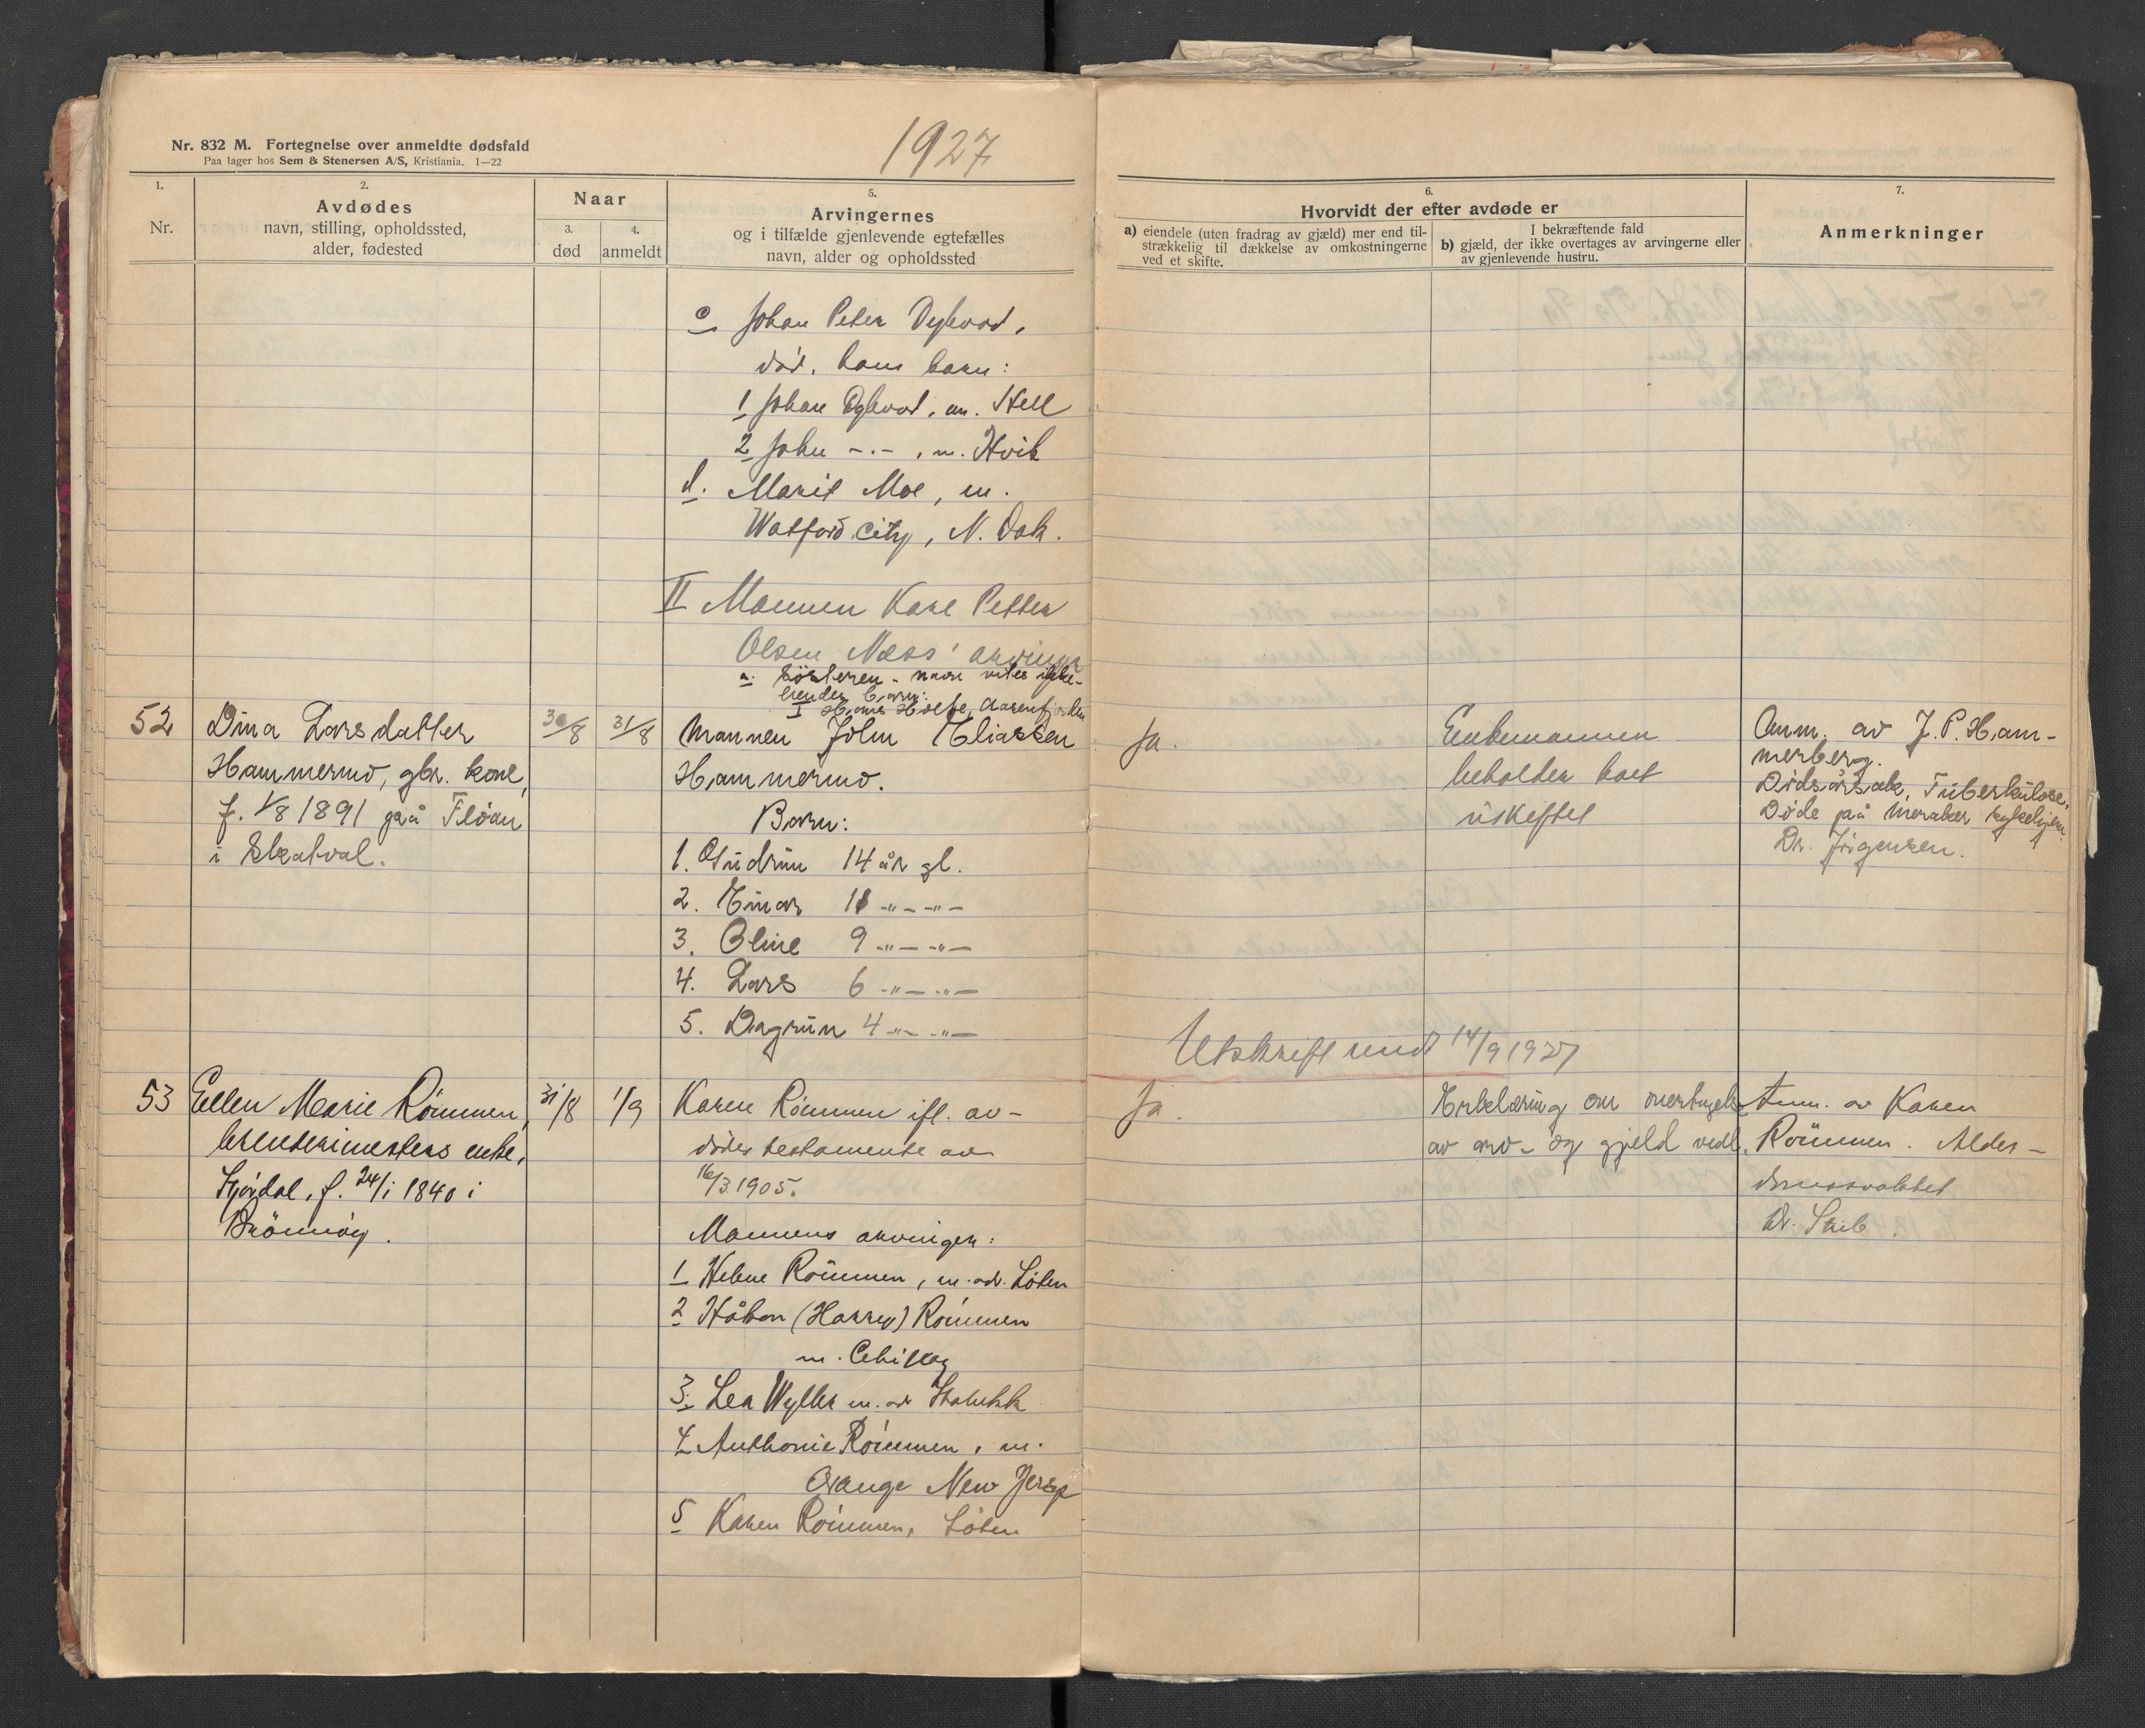 Nr. 832 M. Fortegnelse over anmeldte dødsfald
Paa lager hos Sem & Stenersen A/S, Kristiania. 1—22
1927
1.
Nr.
2.
Avdødes
navn, stilling, opholdssted,
alder, fødested
Naar
3.
død
4.
anmeldt
5.
Arvingernes
og i tilfælde gjenlevende egtefælles
navn, alder og opholdssted
6.
Hvorvidt der efter avdøde er
a) eiendele (uten fradrag av gjæld) mer end til-
strækkelig til dækkelse av omkostningerne
ved et skifte.
I bekræftende fald
b) gjæld, der ikke overtages av arvingerne eller
av gjenlevende hustru.
7.
Anmerkninger
c Johan Peter Dybvad,
død, hans barn:
1 Johan Dybvad, m. Hell
2 John -.- , m. Hvik
d. Marit Moe, m.
Watford City, N. Dak.
II Mannen Karl Petter
Olsen Næss' arvinger
a. Søsteren - navn vites ikke-
hendes barn:
1 Hans
52 Dina Larsdatter
Hammermo, gbr. kone,
f. 1/8 1891 på Fløan
i Skatval.
30/8
31/8
Mannen John Eliassen
Hammermo.
Barn:
1. Gudrun 14 år gl.
2. Einar 11 -"- -"-
3. Oline 9 -"- -"-
4. Lars 6 -"- -"-
5. Dagrun 4 -"- -"-
Ja.
Enkemannen
beholder boet
uskiftet
Anm. av J. P. Ham-
merberg.
Dødsårsak, Tuberkulose.
Døde på Meraker sykehjem.
Dr. Jørgensen.
Utskrift sendt 14/9 1927
53 Ellen Marie Rømmen,
enke,
Stjørdal, f. 24/1 1840 i
Brønnøy.
31/8
1/9
Karen Rømmen ifl. av-
dødes testamente av
16/3 1905.
Mannens arvinger:
1 Helene Rømmen, m. adr. Løten
2 Håkon (Harry) Rømmen
m. Chikag
3. Lea Wyller m. adr
4 Anthonie Rømmen, m.
Orange New Jersy
5 Karen Rømmen, Løten
Ja.
Erklæring om overtagelse
av arv- og gjeld vedl.
Anm. av Karen
Rømmen. Alder-
domssvakhet
Dr.